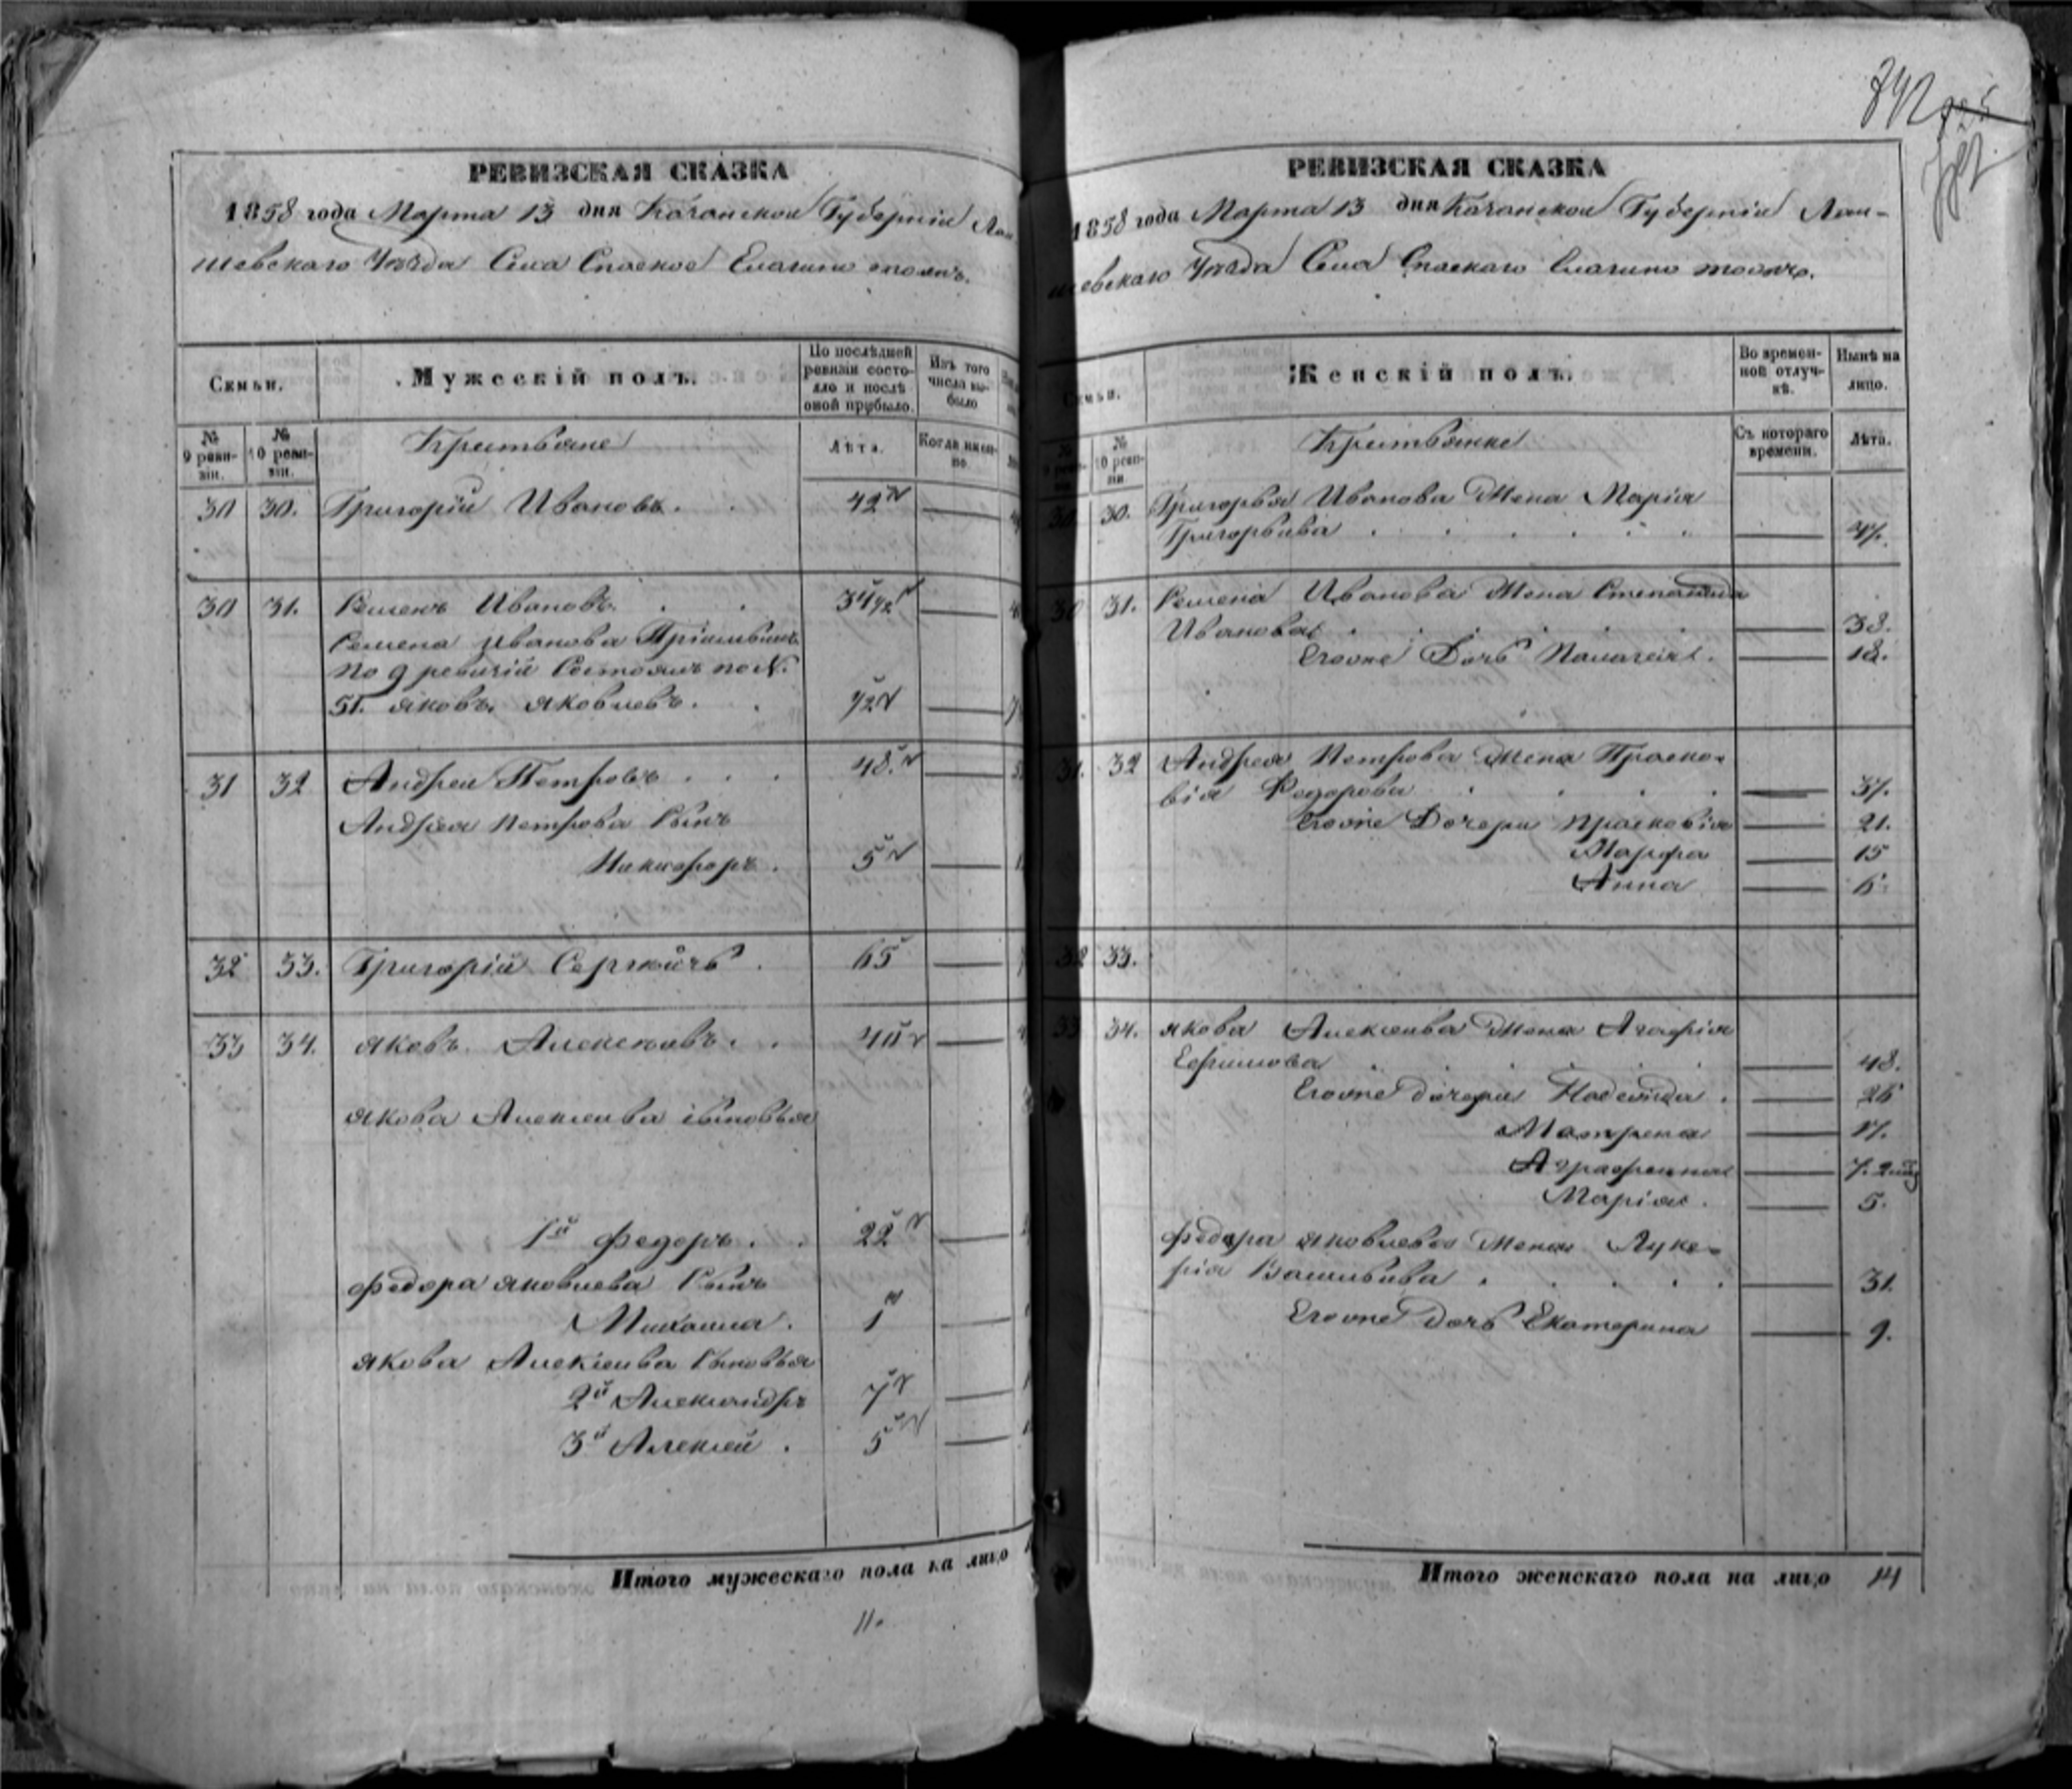 РЕВИЗСКАЯ СКАЗКА
1858 года Марта 13 дня Казанской Губерніи Лаи
шевскаго Уѣзда Села Спаское Елагино тожъ.
Семьи.
Мужескій полъ.
По послѣдней ревизіи состояло и послѣ оной прибыло.
Изъ того числа выбыло
№ 9 ревизіи.
№ 10 ревизіи.
Крестьяне
Лѣта.
Когда именно
30 30. Григорій Ивановъ. 42
30 31. Семенъ Ивановъ. 34 1/2
Семена Иванова Пріемышъ
По 9 ревизіи Состоялъ по №
51. Яковъ Яковлевъ. 1/2
31 32 Андрей Петровъ 48.
Андрея Петрова Сынъ
Никифоръ. 5
32 33. Григорій Сергѣичъ 65
33 34. Яковъ Алексѣевъ. 40
Якова Алексѣева сыновья
1й Федоръ. 22
Федора Яковлева Сынъ
Михаила. 1
Якова Алексѣева Сыновья
2й Александръ 7
3й Алексѣй. 5
Итого мужескаго пола на лицо
11.
742
725
РЕВИЗСКАЯ СКАЗКА
1858 года Марта 13 дня Казанской Губерніи Лаи-
шевскаго Уѣзда Села Спаскаго Елагино тожъ.
Семьи.
Женскій полъ.
Во временной отлучкѣ.
Нынѣ на лицо.
№ 9 ревизіи
№ 10 ревизіи
Крестьянки
Съ котораго времени.
Лѣта.
30 30. Григорья Иванова Жена Марія
Григорьива 47.
30 31. Семена Иванова Жена Степанида
Иванова 38.
Егоvне Дочь 18.
31. 32 Андрея Петрова Жена Праско-
вія Федорова 37.
Егоvне Дочери Прасковія 21.
Марфа 15
Анна 6.
32 33.
33 34. Якова Алексеива Жена Агафія
Ефимова 48.
Егоvне дочери Надежда. 26
Матрена 17.
Аграфенна 7.
Марія. 5.
Федора Яковлева Жена Луке-
рія Васильива 31.
Егоvне Дочь Екатерина 9.
Итого женскаго пола на лицо 14